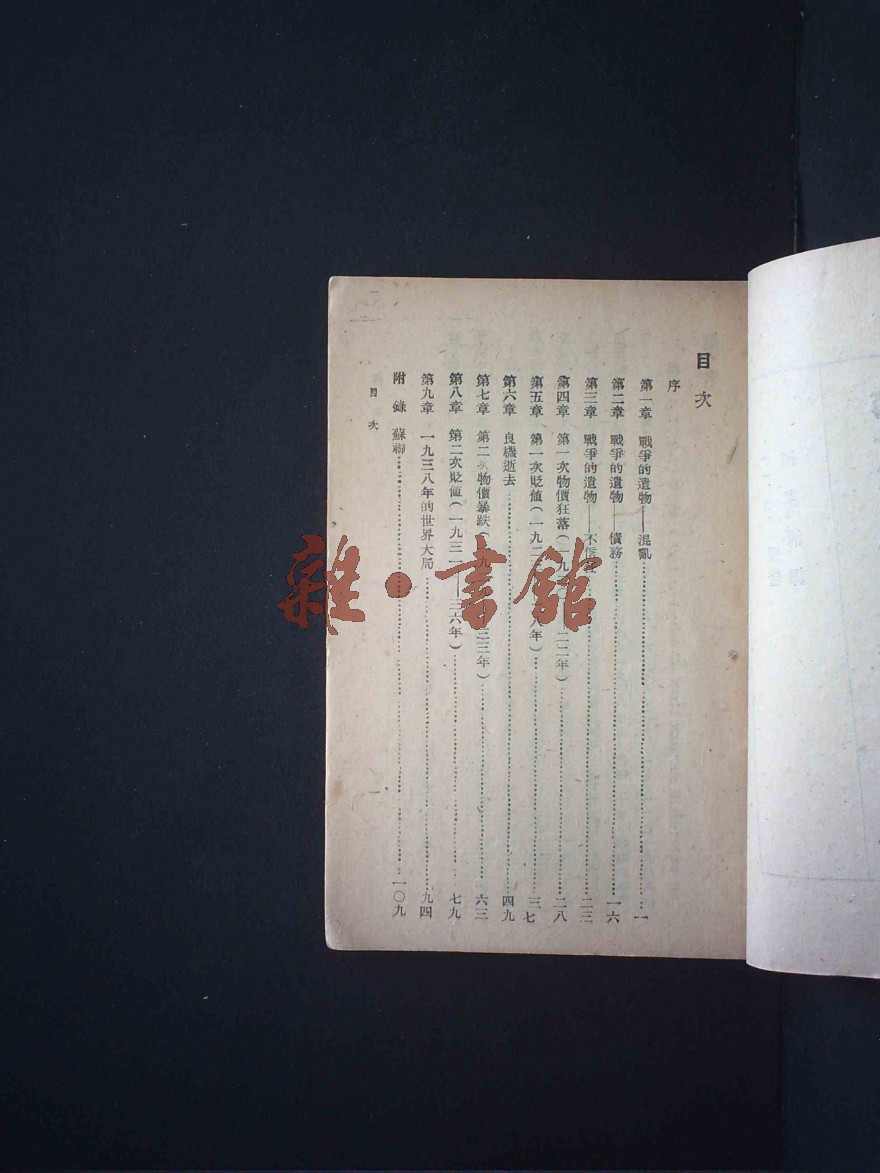 目次
序
第一章 戰爭的遺物——混亂 一
第二章 戰爭的遺物——債務 一六
第三章 戰爭的遺物——不信任 二三
第四章 第一次物價狂落(一九 二二年) 二八
第五章 第一次貶値(一九二 八年) 三七
第六章 良機逝去 四九
第七章 第二次物價暴跌( 三三年) 六三
第八章 第二次貶値(一九三一——三六年) 七九
第九章 一九三八年的世界大局 九四
附錄 蘇聯 一〇九
目次
一
雜·書館